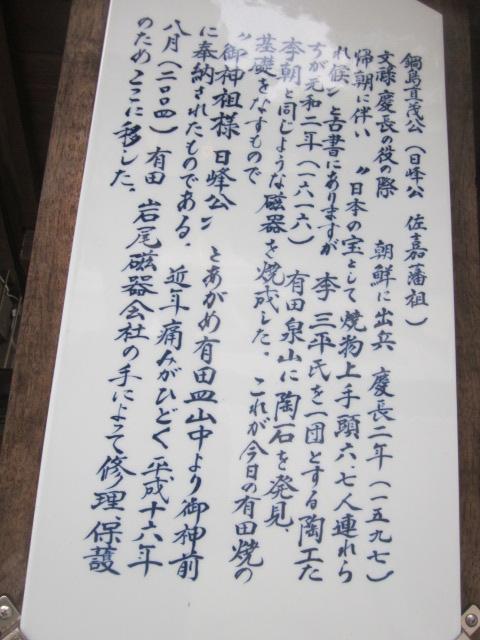 鍋島直茂公(日峰公 佐嘉藩祖)
文禄慶長の役の際 朝鮮に出兵 慶長二年(一五九七)
帰朝に伴い〝日本の宝として焼物上手頭六、七人連れら
れ候〟と古書にありますが 李 三平氏を一団とする陶工た
ちが元和二年(一六一六) 有田泉山に陶石を発見、
李朝と同じような磁器を焼成した。これが今日の有田焼の
基礎をなすもので
〝御神祖様 日峰公〟とあがめ有田皿山中より御神前
に奉納されたものである。 近年痛みがひどく 平成十六年
八月(二〇〇四) 有田 岩尾磁器会社の手によって修理、保護
のためここに移した。